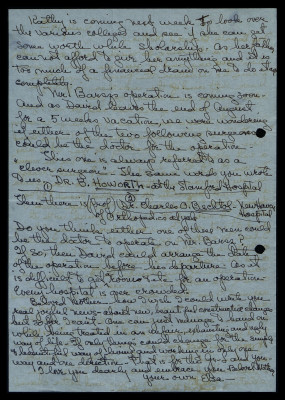 Kathy is coming next week to look over
the various colleges and see if she can get
some worth while scholarship. As her father
can not afford to give her anything and it is
too much of a financial drain on me to do it so
completely.
Mr. Barsz's operation is coming soon.
And as David leaves the end of August
for a 5 weeks vacation, we were wondering
if either of the two following surgeons
could be the doctor for the operation.
This one is always referred to as a
clever surgeon. The same word you wrote
① Dr. B. Howorth at the Stamford Hospital
Then there is (Prof) Dr Charles O. Bechtol New Haven
Hospital
Orthopedics of Yale
Do you think either one of these men could
be the doctor to operate on Mr. Barsz?
If so, then David could arrange the date of
the operation before his departure. As it
is difficult to get "rooms" etc. for an operation
Every hospital is over crowded.
Beloved Mother. How I wish I could write you
real joyful news about new, beautiful constructive changes
but so far I can't. One can not manage a hand on
while being treated in an unfair, exhausting and ugly
way of life. If only things could change for the simple
& beautiful way of living and working in only one
way and one direction. That is for this and you.
I love you dearly and embrace you Beloved Mother
your own Elsa.